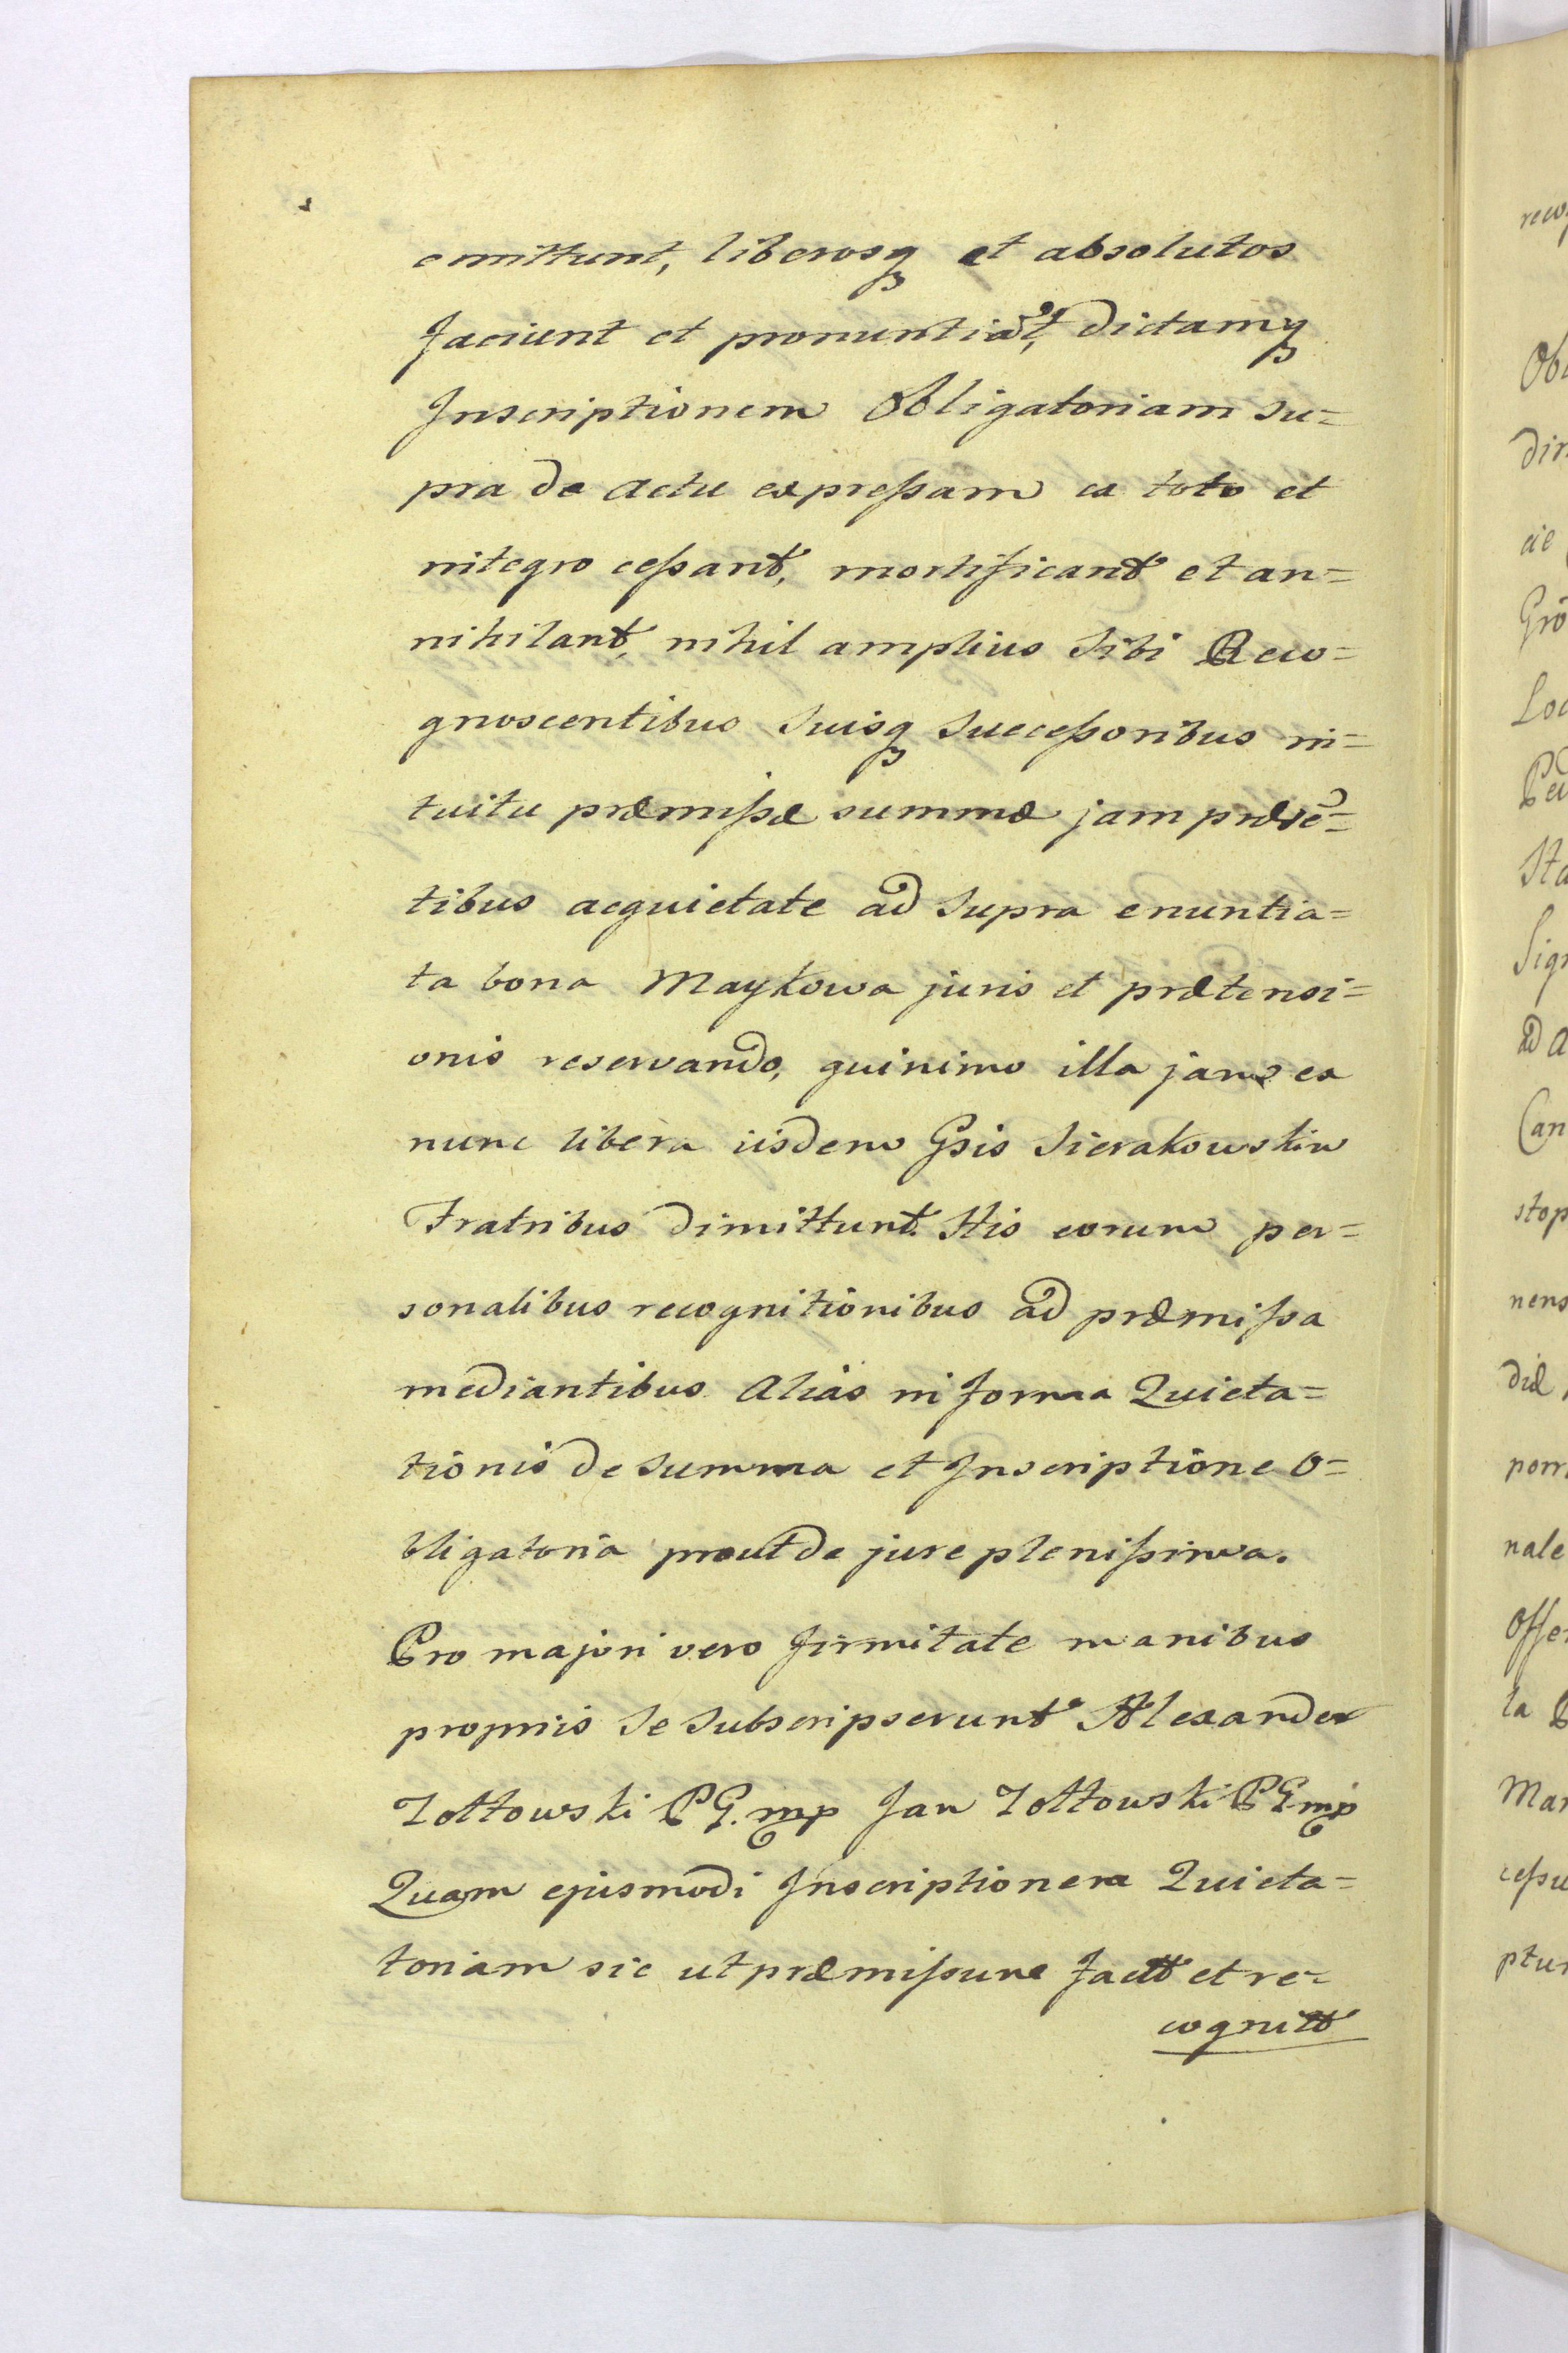 emittunt, liberosq et absolutos
faciunt et pronuntiāt, dictamq
Inscriptionem Obligatoriam su=
pra de actu expressam ex toto et
integro cessant, mortificant et an=
nihilant, nihil amplius sibi Reco=
gnoscentibus suisq successoribus in=
tuitu præmissæ summæ jam præsē=
tibus acquietate ad supra enuntia=
ta bona Maykowa juris et prætensi=
onis reservando, quinimo illa jam ex
nunc libera iisdem Gsis Sierakowskim
Fratribus dimittunt. His eorum per=
sonalibus recognitionibus ad præmissa
mediantibus alias in forma Quieta=
tionis de summa et Inscriptione O=
bligatoria prout de jure plenissima.
Pro majori vero firmitate manibus
propriis se subscripserunt Alexander
Zołtowski PG. mp Jan Zołtowski PG mp
Quam ejusmodi Inscriptionem Quieta=
toriam sic ut præmissum factt et re=
cognitt
reco
Obl
dir
cie
Grö
Loc
Sta
Sig
ad a
Can
stop
nens
diæ
porr
nale
Offe
la
Mar
cessu
ptur